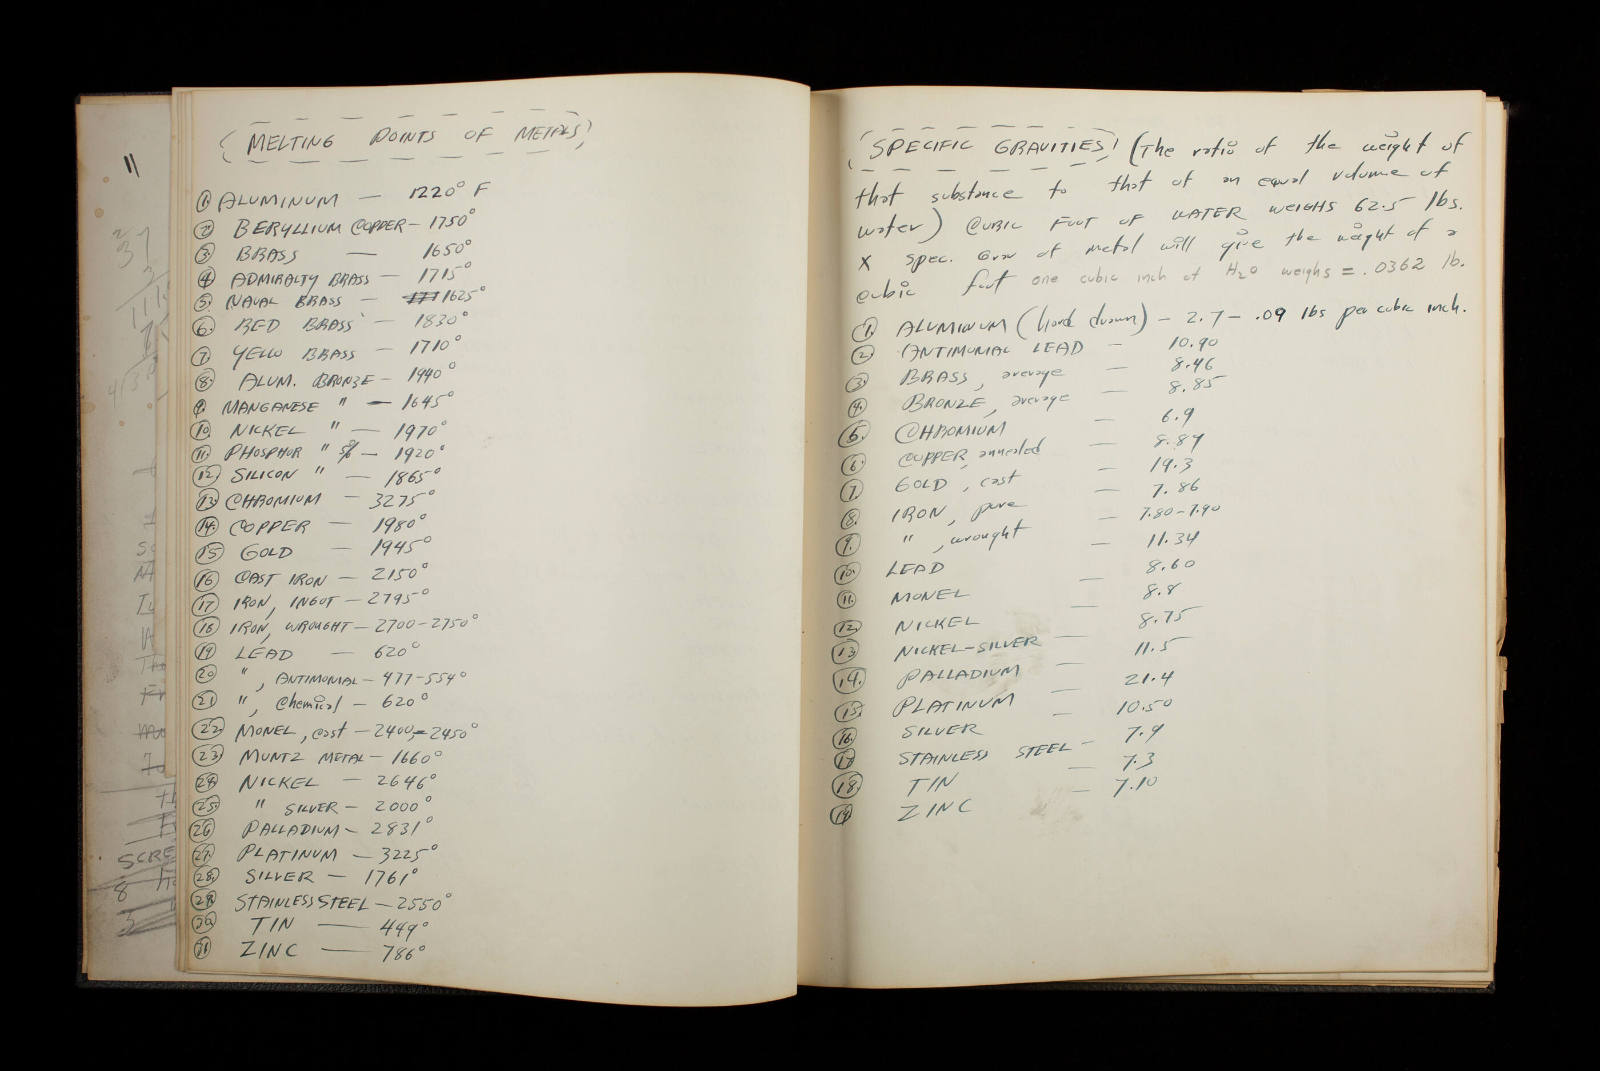 11
37
SCRE
8
3
MELTING POINTS OF METALS
1. ALUMINUM — 1220° F
2. BERYLLIUM COPPER — 1750°
3. BRASS — 1650°
4. ADMIRALTY BRASS — 1715°
5. NAVAL BRASS — 1625°
6. RED BRASS — 1830°
7. YELLO BRASS — 1710°
8. ALUM. BRONZE — 1940°
9. MANGANESE " — 1645°
10. NICKEL " — 1970°
11. PHOSPHOR " — 1920°
12. SILICON " — 1865°
13. CHROMIUM — 3275°
14. COPPER — 1980°
15 GOLD — 1945°
16 CAST IRON — 2150°
17 IRON, INGOT — 2795°
18 IRON, WROUGHT — 2700-2750°
19 LEAD — 620°
20 ", ANTIMONIAL — 477-554°
21 ", Chemical — 620°
22 MONEL, cast — 2400-2450°
23 MUNTZ METAL — 1660°
24 NICKEL — 2646°
25. " SILVER — 2000°
26 PALLADIUM — 2831°
27. PLATINUM — 3225°
28. SILVER — 1761°
29 STAINLESS STEEL — 2550°
30 TIN — 449°
31 ZINC — 786°
SPECIFIC GRAVITIES (The ratio of the weight of
that substance to that of an equal volume of
water) CUBIC FOOT OF WATER WEIGHS 62.5 lbs.
X spec. Grav of metal will give the weight of a
cubic foot one cubic inch of H2O weighs = .0362 lb.
1. ALUMINUM (hard drawn) — 2.7 — .09 lbs per cubic inch.
2. ANTIMONIAL LEAD — 10.90
3. BRASS, average — 8.46
4. BRONZE, average — 8.85
5. CHROMIUM — 6.9
6. COPPER, annealed — 8.89
7. GOLD, cast — 19.3
8. IRON, pure — 7.86
9. ", wrought — 7.80-7.90
10. LEAD — 11.34
11. MONEL — 8.60
12. NICKEL — 8.8
13 NICKEL-SILVER — 8.75
14. PALLADIUM — 11.5
15. PLATINUM — 21.4
16. SILVER — 10.50
17 STAINLESS STEEL — 7.9
18. TIN — 7.3
19. ZINC — 7.10